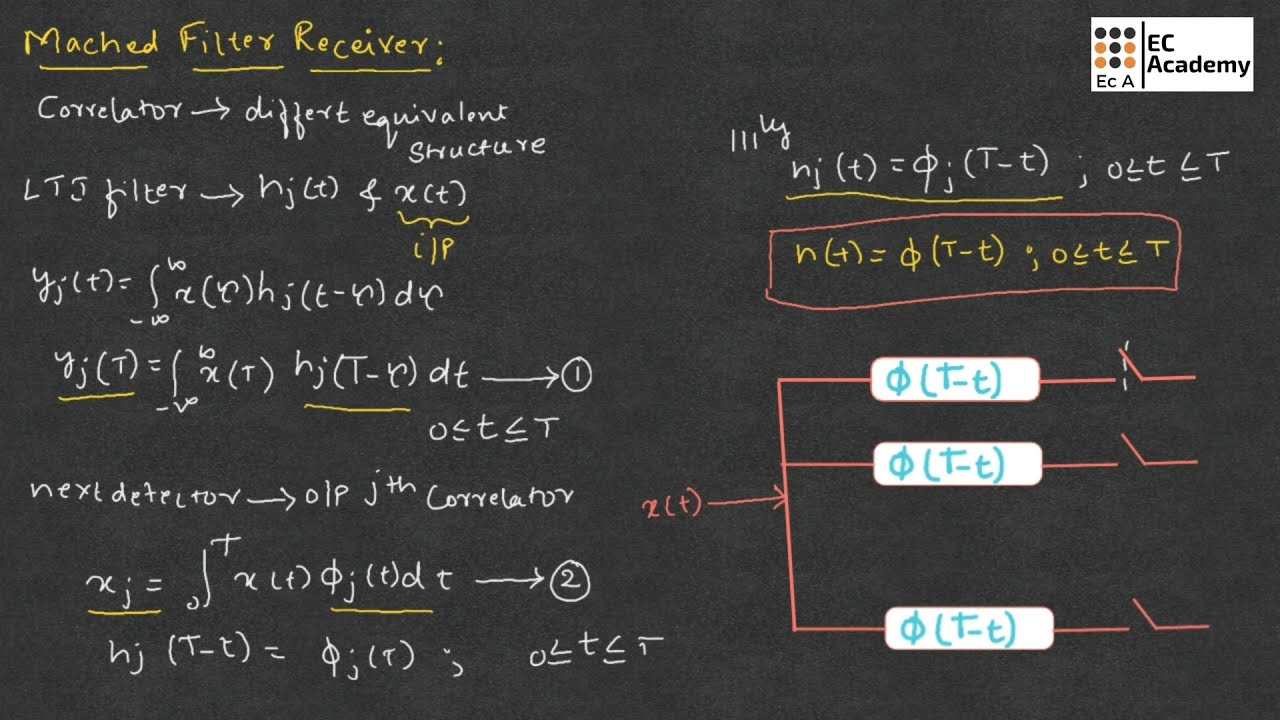 Mached Filter Receiver:
Correlator → differt equivalent
structure
LTI filter → hj(t) & x(t)
i/p
yj(t) = ∫_{-∞}^{∞} x(τ) hj(t-τ) dτ
yj(T) = ∫_{-∞}^{∞} x(T) hj(T-τ) dt → ①
0≤t≤T
next detector → o/p jth Correlator
xj = ∫_{0}^{T} x(t) ϕj(t) dt → ②
hj (T-t) = ϕj(τ) ; 0≤t≤T
EC
Academy
Ec A
|||ly
hj(t) = ϕj(T-t) ; 0≤t≤T
h(t) = ϕ(T-t) ; 0≤t≤T
ϕ(T-t)
ϕ(T-t)
x(t)
ϕ(T-t)